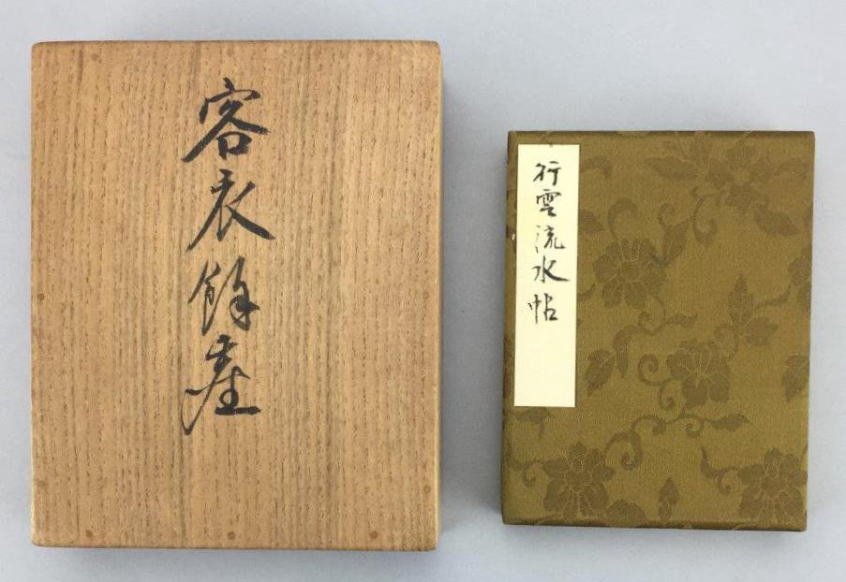 客衣餘塵
行雲流水帖